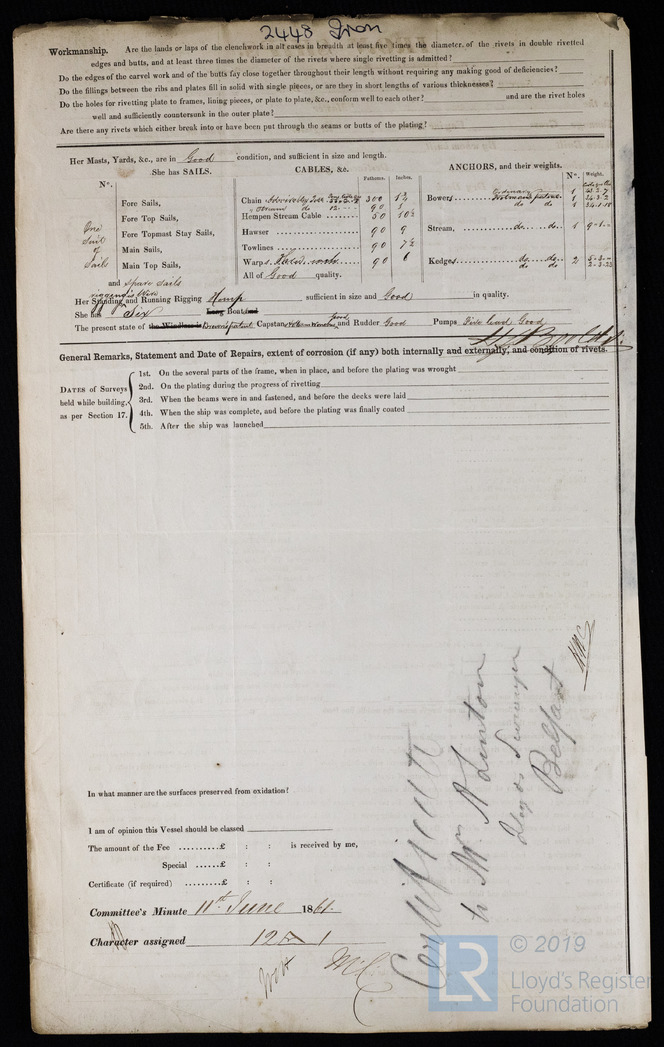 2448 Iron
Workmanship. Are the lands or laps of the clenchwork in all cases in breadth at least five times the diameter of the rivets in double rivetted
edges and butts, and at least three times the diameter of the rivets where single rivetting is admitted?
Do the edges of the carvel work and of the butts fay close together throughout their length without requiring any making good of deficiencies?
Do the fillings between the ribs and plates fill in solid with single pieces, or are they in short lengths of various thicknesses?
Do the holes for rivetting plate to frames, lining pieces, or plate to plate, &c., conform well to each other? and are the rivet holes
well and sufficiently countersunk in the outer plate?
Are there any rivets which either break into or have been put through the seams or butts of the plating?
Her Masts, Yards, &c., are in Good condition, and sufficient in size and length.
She has SAILS. CABLES, &c. ANCHORS, and their weights.
N°. Fathoms. Inches. N°. Weight.
Fore Sails, Chain 300
Bowers 1
Fore Top Sails, Stream do 90 1
do do 1
Hempen Stream Cable 50 10½
Fore Topmast Stay Sails, Hawser 90 9 Stream, do do 1
One Suit of Sails
Main Sails, Towlines 90 7½
Main Top Sails, Warps 90 6 Kedges do do 2
do do
and Spare Sails All of Good quality.
rigging's Wire
Her Standing and Running Rigging Hemp sufficient in size and Good in quality.
She has Six Long Boat and
The present state of the Windlass is patent Capstan and Rudder Good Pumps lead Good
General Remarks, Statement and Date of Repairs, extent of corrosion (if any) both internally and externally, and condition of rivets.
DATES of Surveys held while building, as per Section 17.
1st. On the several parts of the frame, when in place, and before the plating was wrought
2nd. On the plating during the progress of rivetting
3rd. When the beams were in and fastened, and before the decks were laid
4th. When the ship was complete, and before the plating was finally coated
5th. After the ship was launched
Certificate
to Mr. A Linton
Lloyds Surveyor
Belfast
In what manner are the surfaces preserved from oxidation?
I am of opinion this Vessel should be classed
The amount of the Fee £ : : is received by me,
Special £ : :
Certificate (if required) £ : :
Committee's Minute 11th June 1861.
Character assigned 12 A 1
© 2019
LR
Lloyd's Register
Foundation